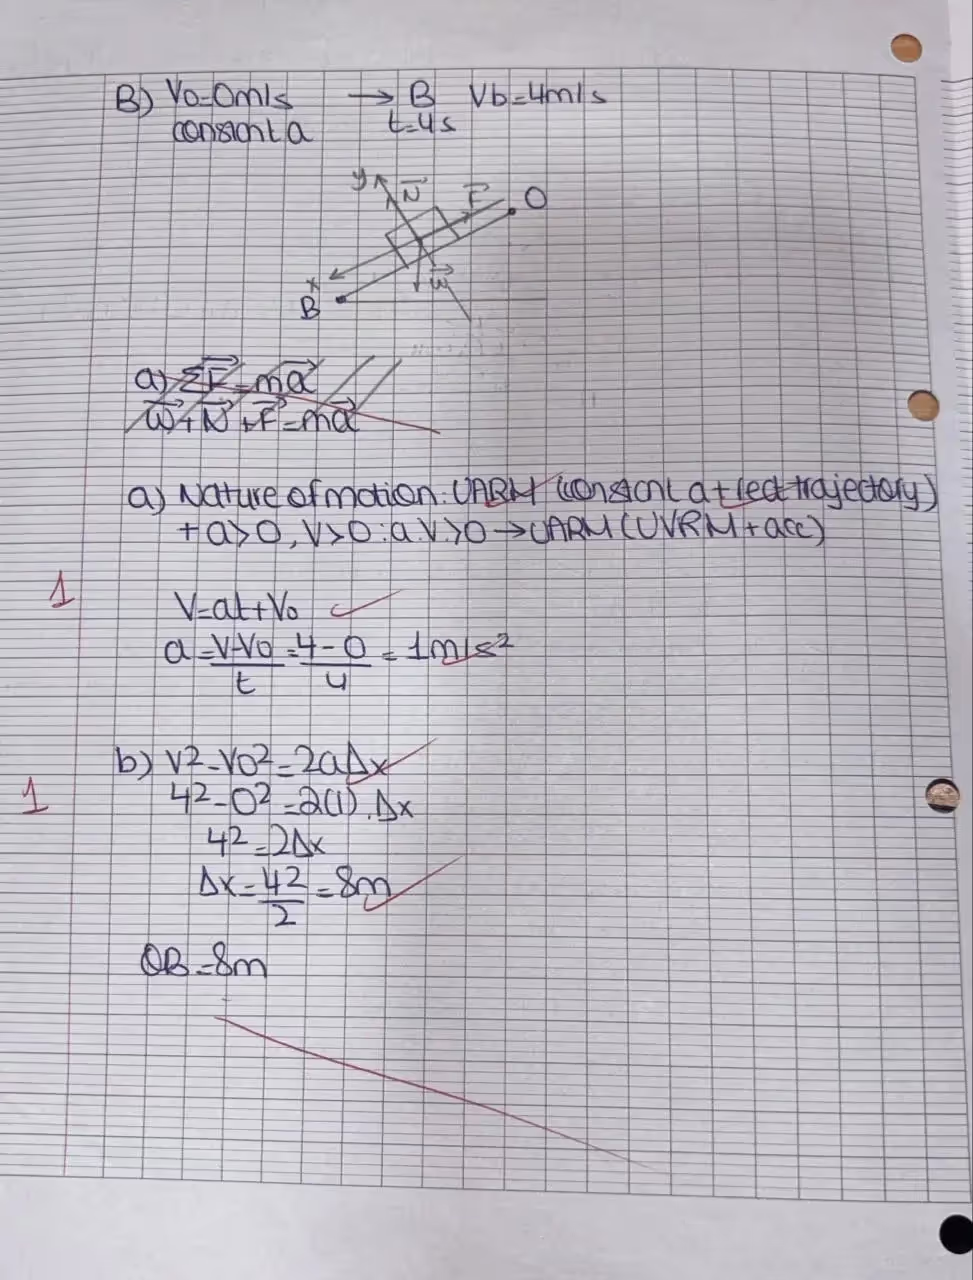 B) Vo=0m/s → B Vb=4m/s
constant a t=4s
y N F O
x B W
a) ΣF=ma
W+N+F=ma
a) Nature of motion: UARM (constant a + rect trajectory)
+ a>0, V>0 : a.V>0 → UARM (UVRM + acc)
1
V=at+Vo
a=V-Vo/t=4-0/4=1m/s²
b) V²-Vo²=2aΔx
1
4²-0²=2(1).Δx
4²=2Δx
Δx=4²/2=8m
OB=8m